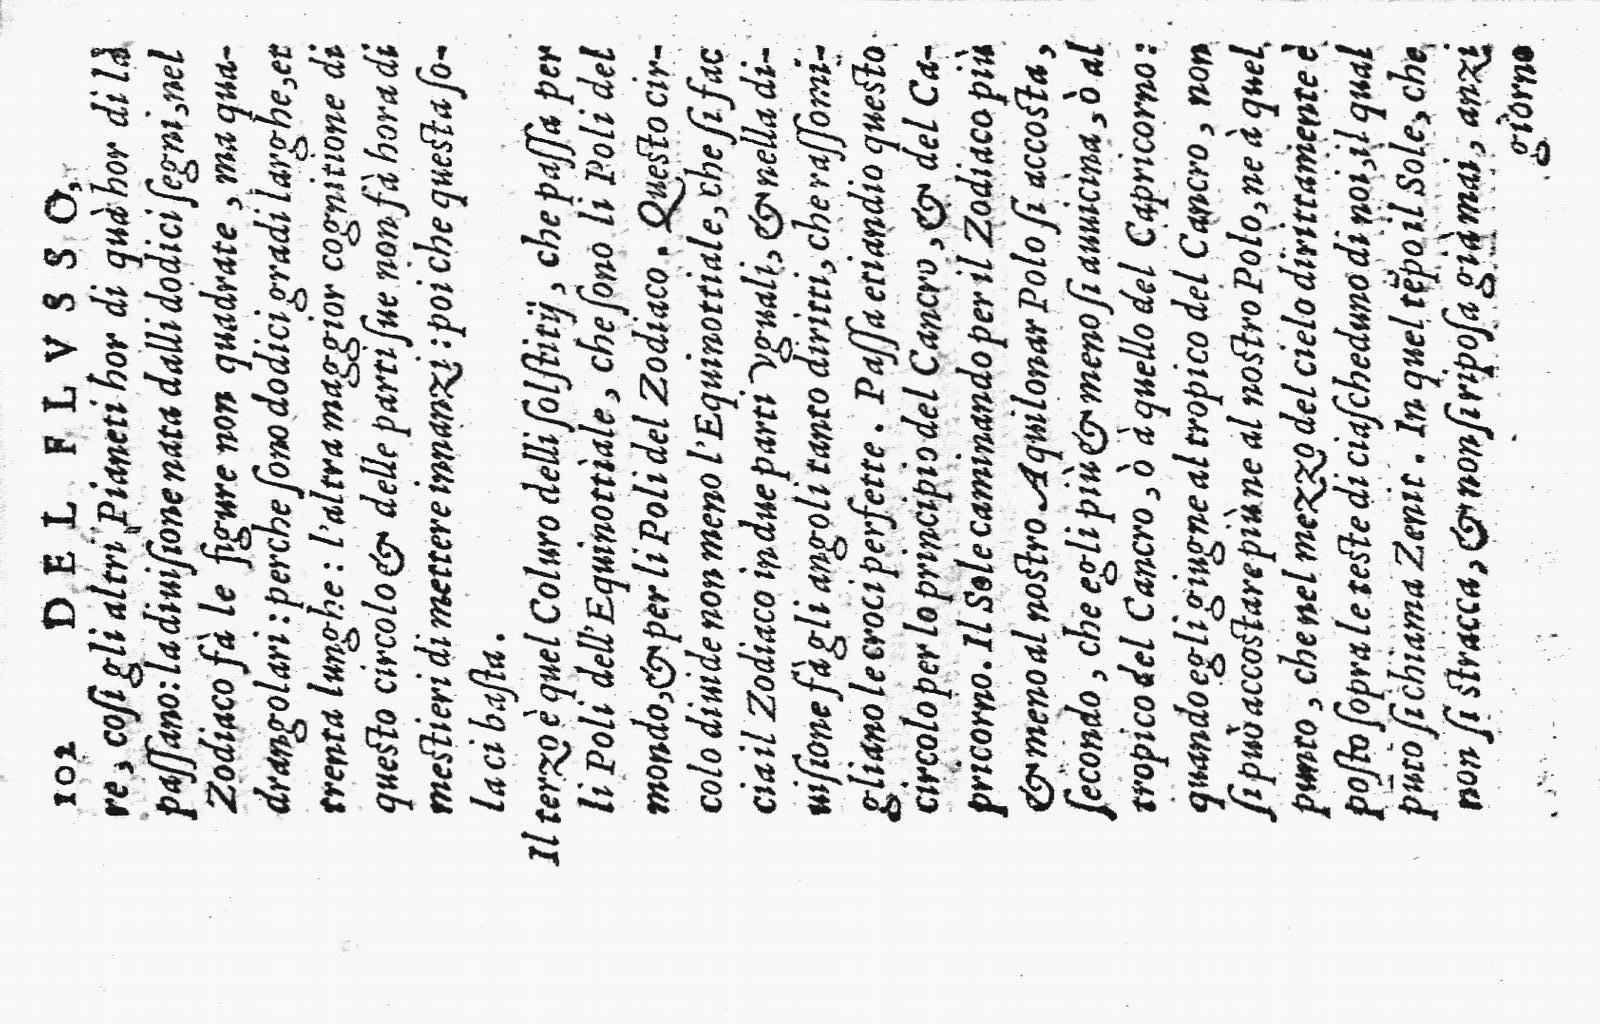 102 DEL FLVSSO,
re, coſi gli altri Pianeti hor di quà hor di là
paſſano: la diuiſione nata dalli dodici ſegni, nel
Zodiaco fà le figure non quadrate, ma qua-
drangolari: perche ſono dodici gradi larghe, et
trenta lunghe: l'altra maggior cognitione di
questo circolo & delle parti ſue non fà hora di
mestieri di mettere innanzi: poi che questa ſo-
la ci baſta.
Il terzo è quel Coluro delli ſolſtitij, che paſſa per
li Poli dell'Equinottiale, che ſono li Poli del
mondo, & per li Poli del Zodiaco. Questo cir-
colo diuide non meno l'Equinottiale, che ſi fac
cia il Zodiaco in due parti vguali, & nella di-
uiſione fà gli angoli tanto diritti, che raſſomi-
gliano le croci perfette. Paſſa etiandio questo
circolo per lo principio del Cancro, & del Ca-
pricorno. Il Sole caminando per il Zodiaco più
& meno al nostro Aquilonar Polo ſi accosta,
ſecondo, che egli più & meno ſi auuicina, ò al
tropico del Cancro, ò à quello del Capricorno:
quando egli giugne al tropico del Cancro, non
ſi può accostare più ne al nostro Polo, ne à quel
punto, che nel mezzo del cielo dirittamente è
poſto ſopra le teste di ciaſcheduno di noi, il qual
pũto ſi chiama Zenit. In quel tẽpo il Sole, che
non ſi stracca, & non ſi ripoſa già mai, anzi
giorno